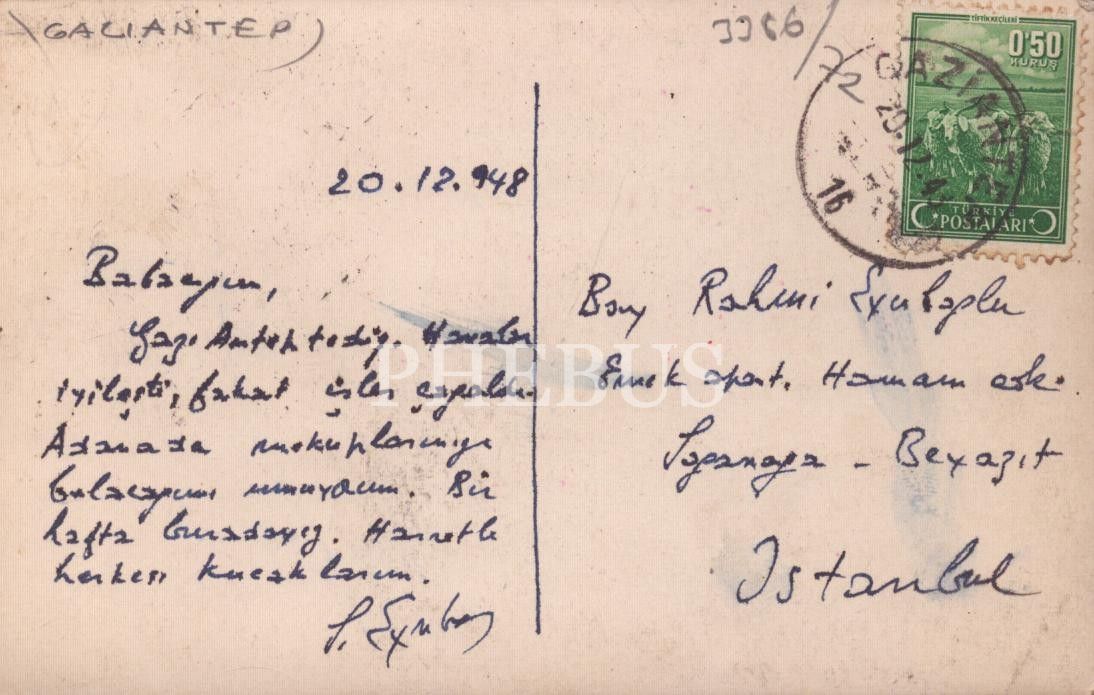 GAZIANTEP)
3386/72
TİFTİK KEÇİLERİ
0'50
KURUŞ
TÜRKİYE
POSTALARI
GAZİANTEP
16
20.12.948
Babacığım,
Gazi Antepteyiz. Havalar
iyileşti, fakat işler çoğaldı.
Adanada mektuplarınızı
bulacağımı umuyorum. Bir
hafta buradayız. Hasretle
herkesi kucaklarım.
S. Eyuboğ
Bay Rahmi Eyuboğlu
Emek apart. Hamam sok.
Soğanağa - Beyazıt
Istanbul
PHEBUS